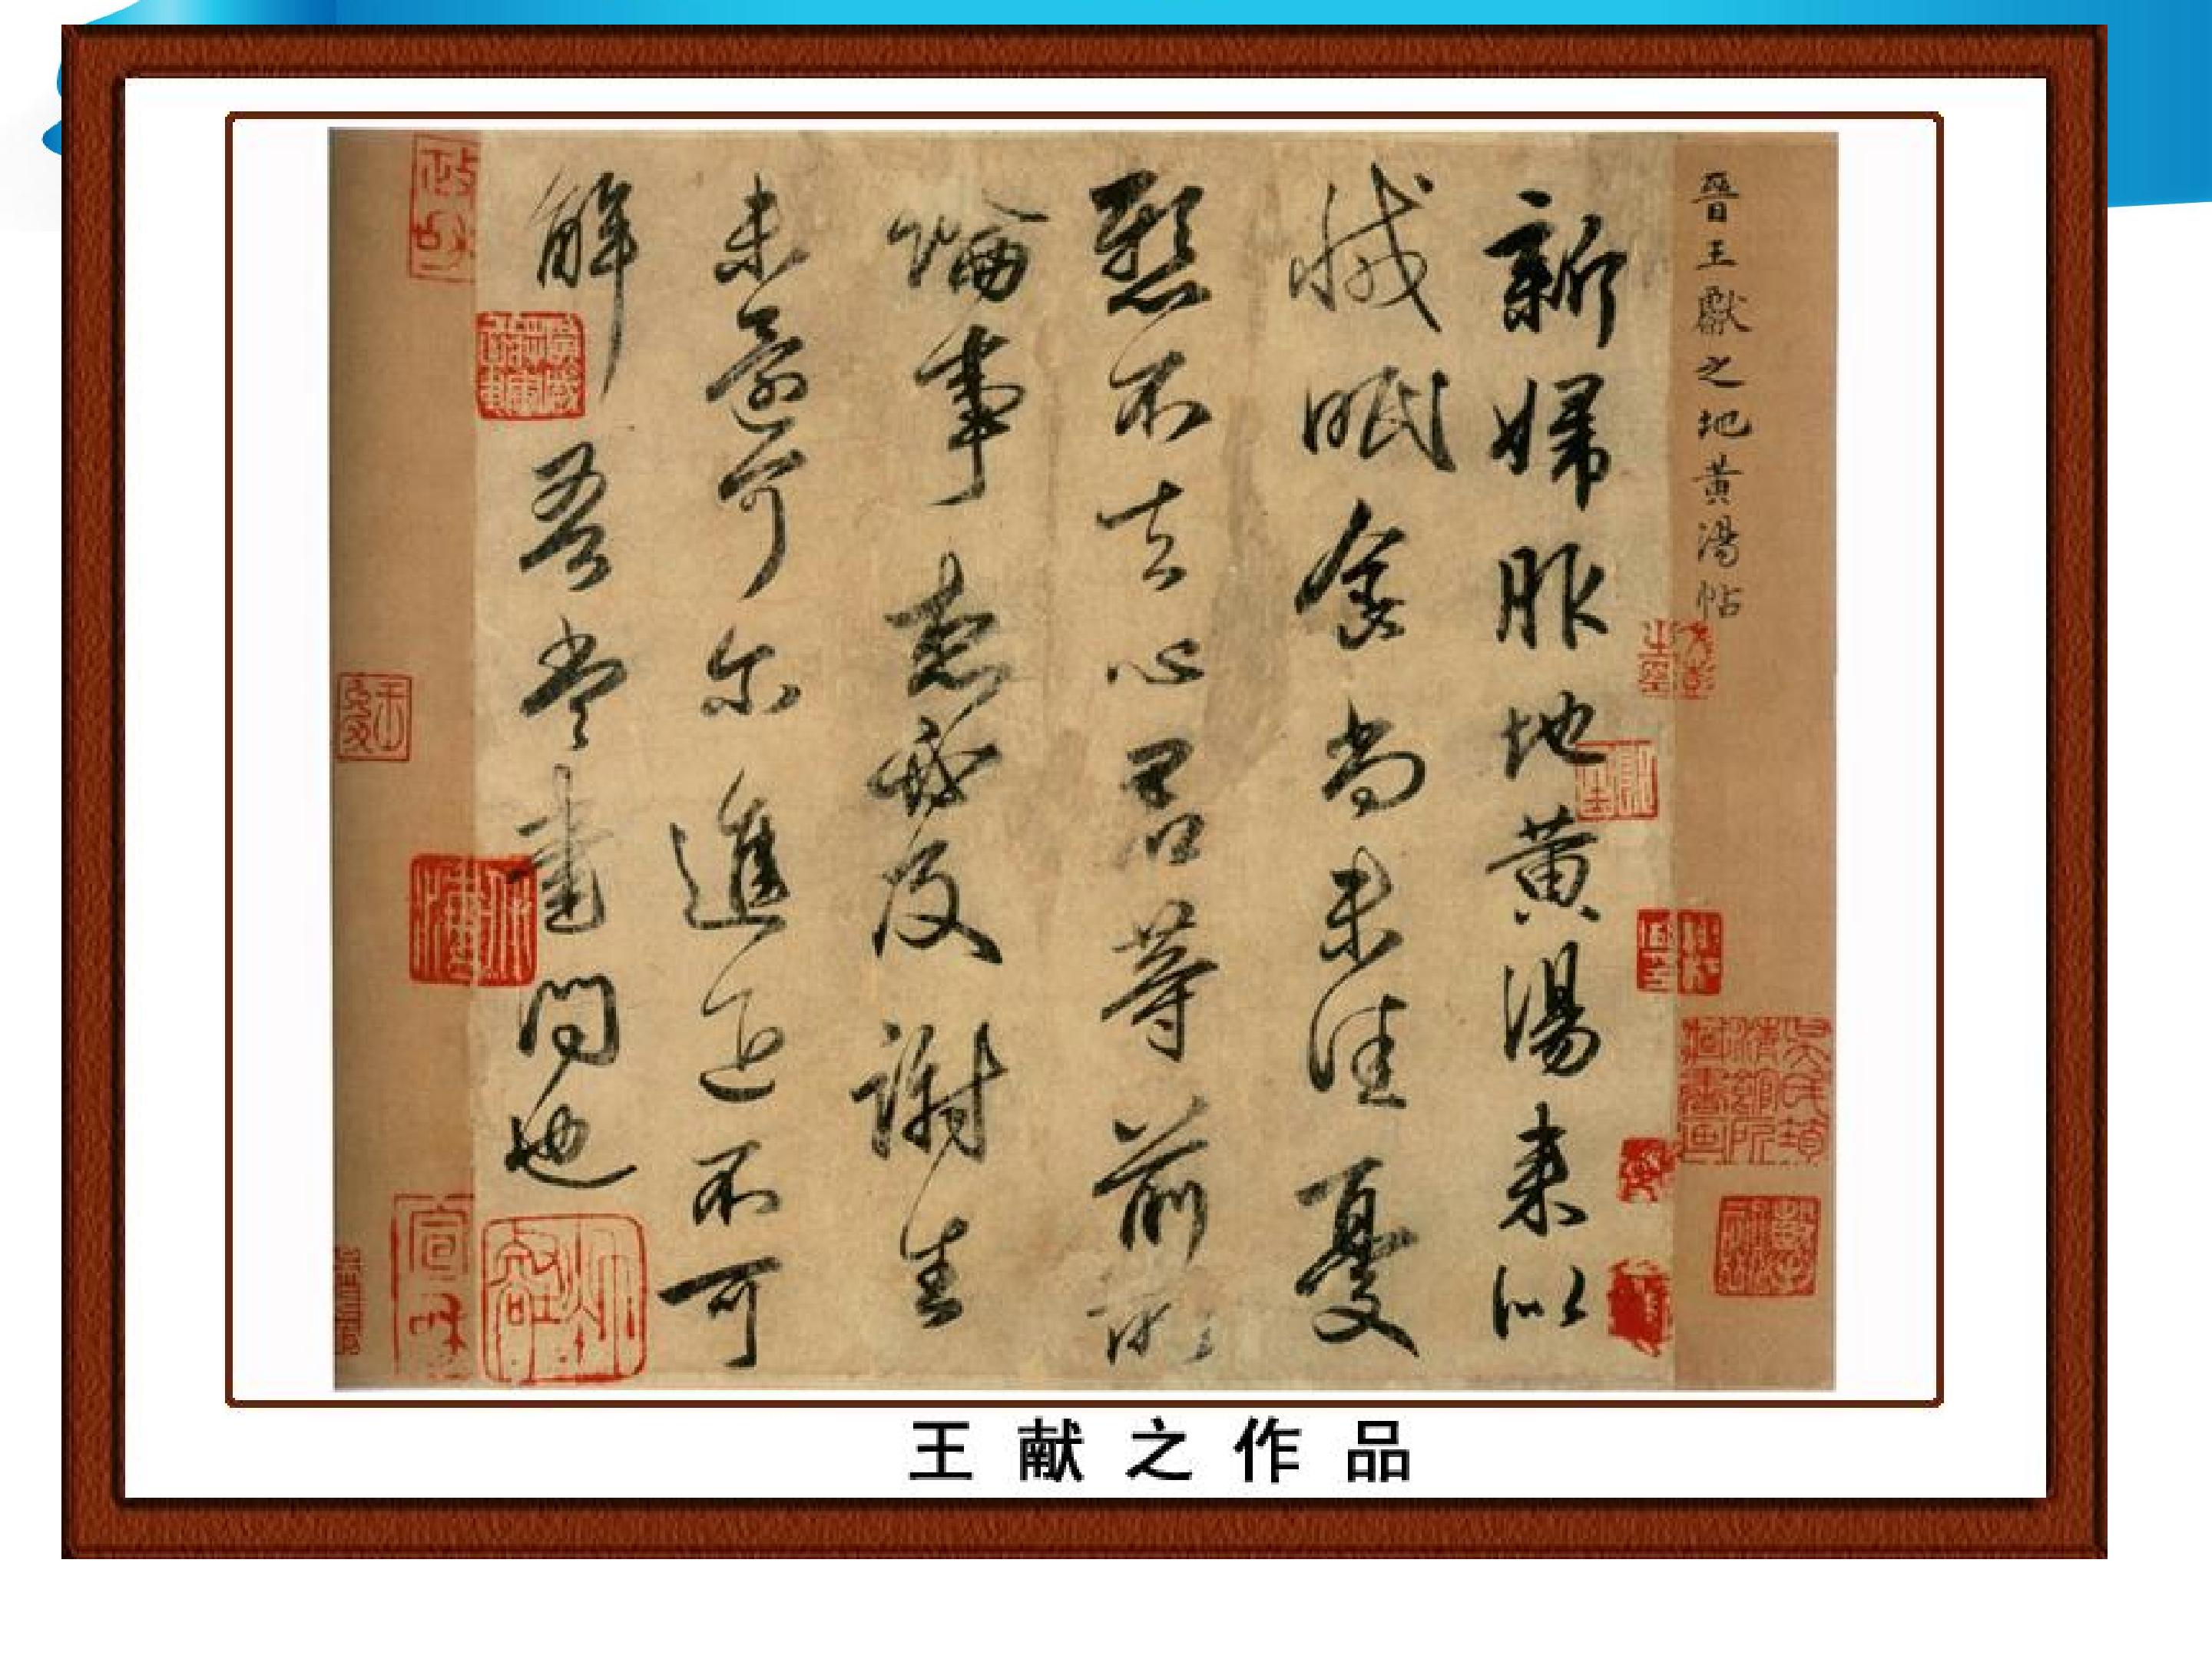 晉王獻之地黃湯帖
新婦服地黃湯來似
減眠食尚未佳憂
懸不去心君等前所
論事想必及謝生
未還可爾進退不可
解吾當書問也
王献之作品